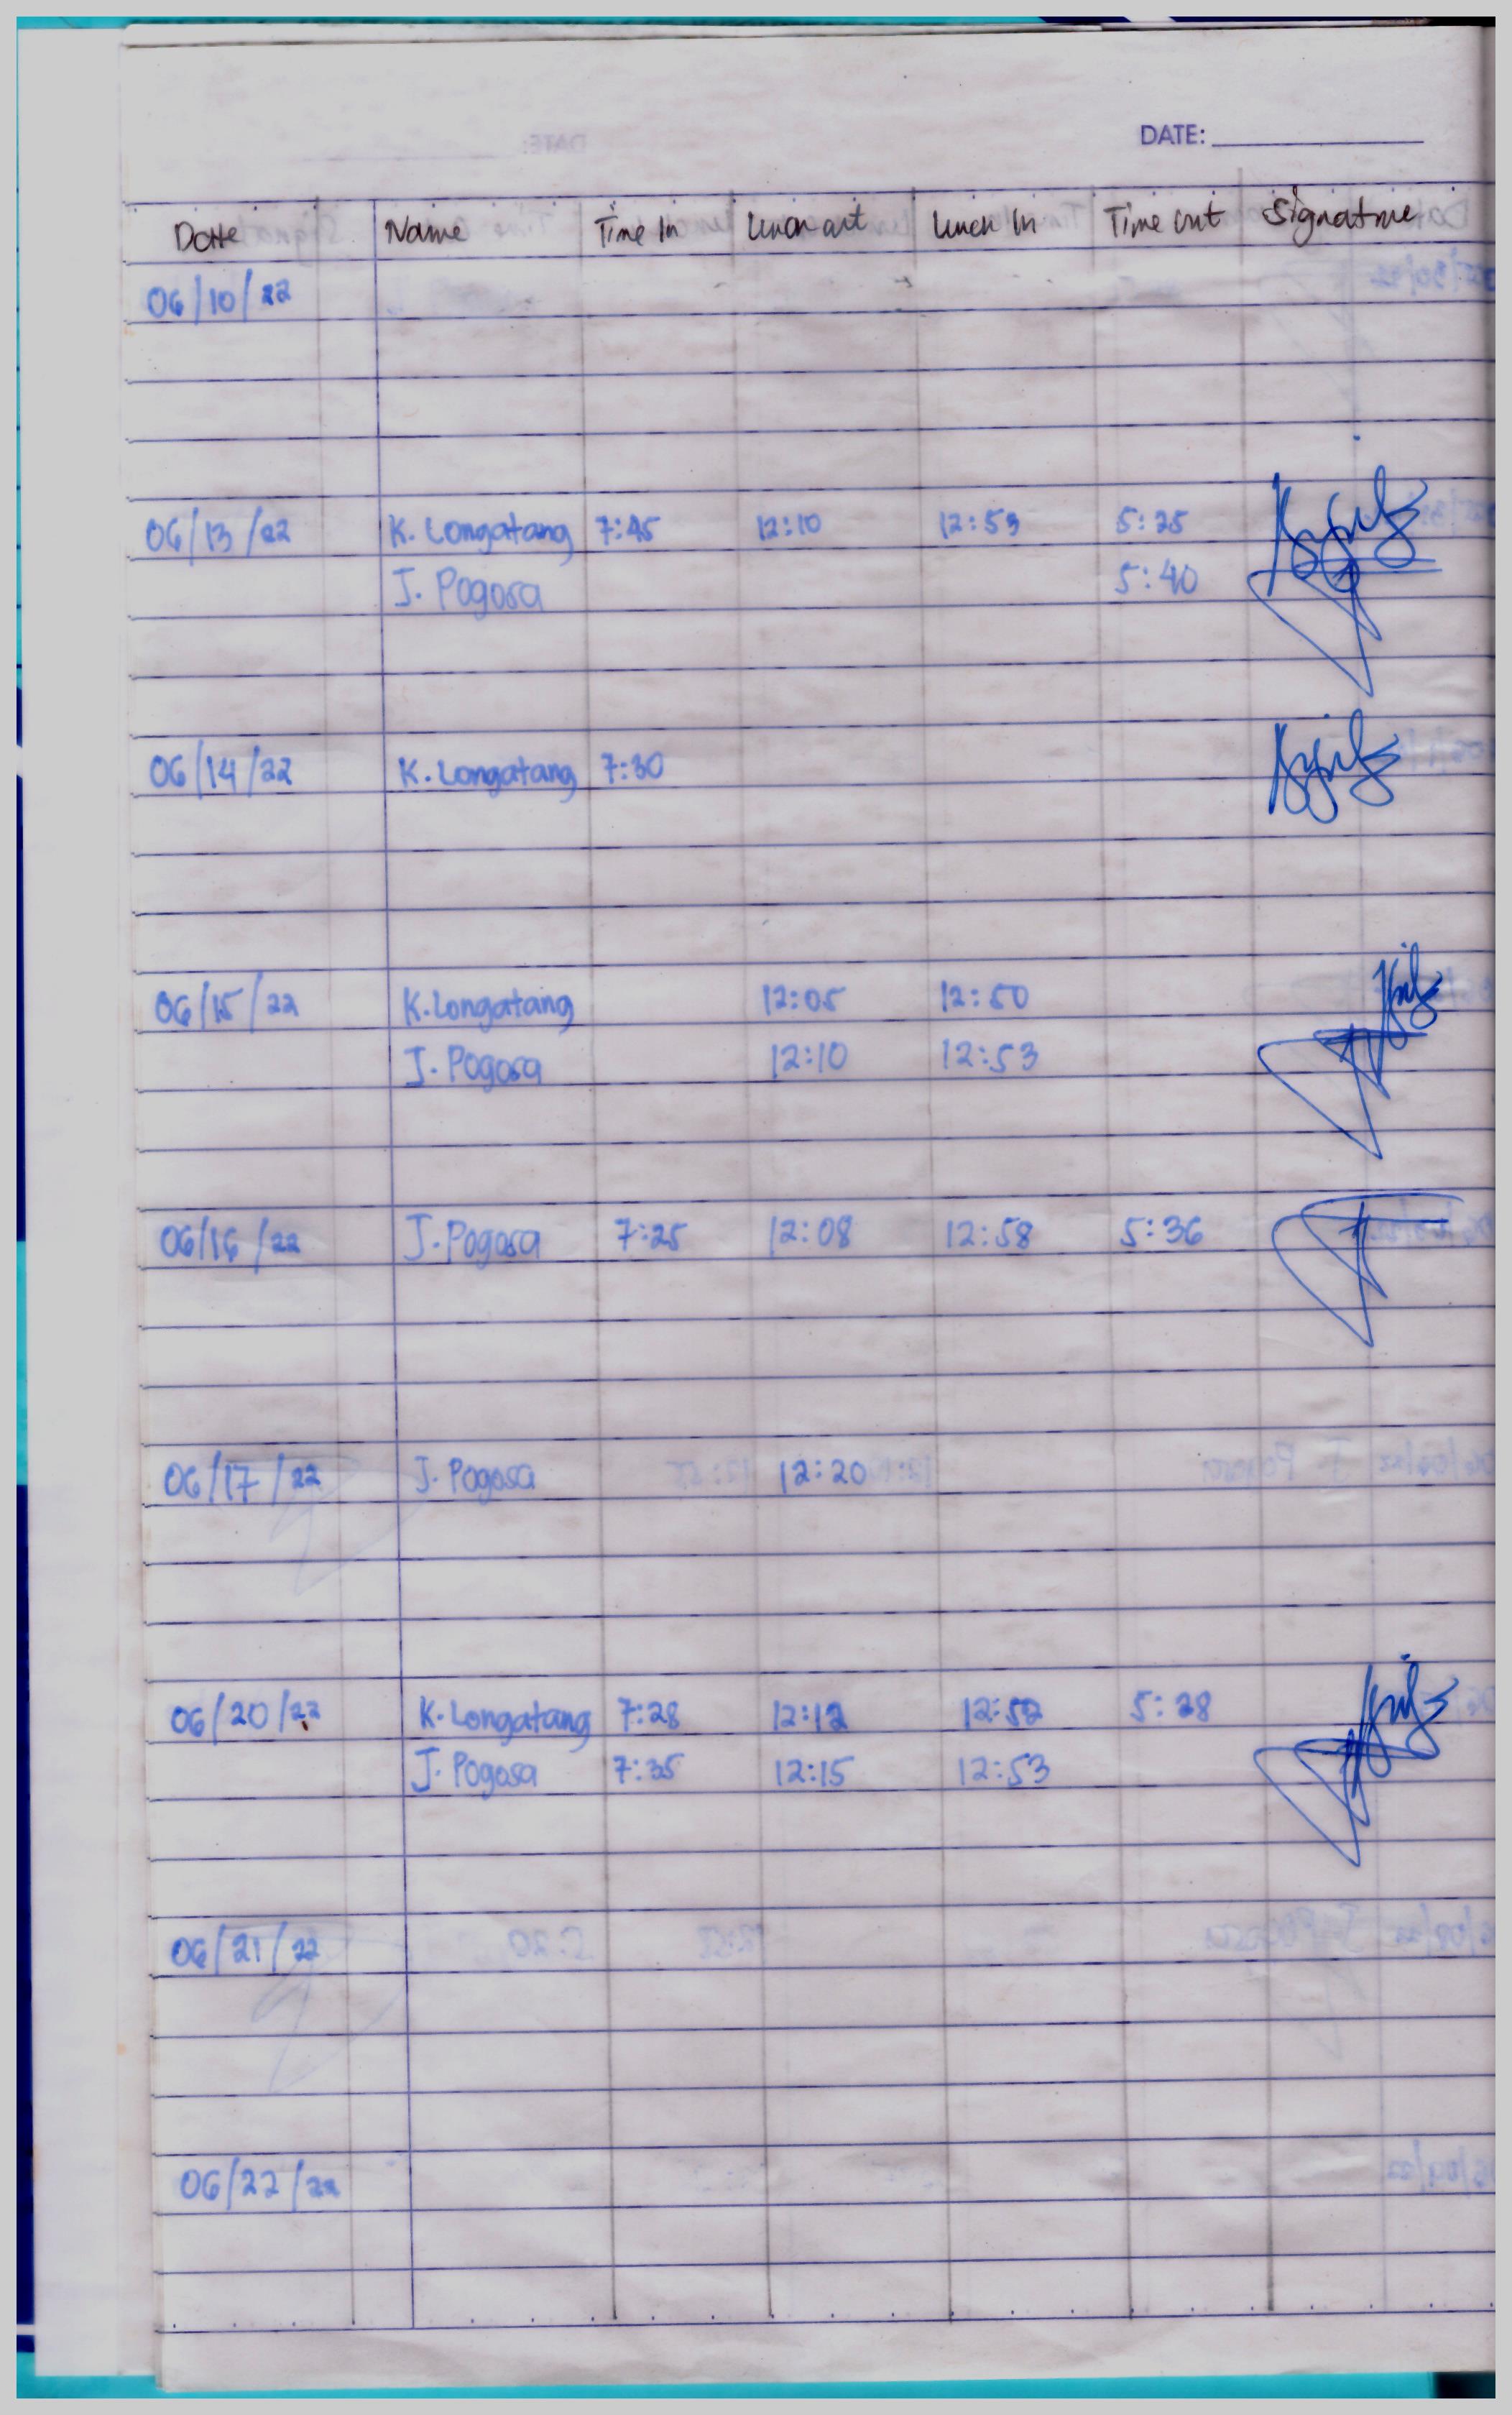 DATE:
Date Name Time In Lunch out Lunch In Time out Signature
06/10/22
06/13/22 K. Longatang 7:45 12:10 12:53 5:25
J. Pogosa 5:40
06/14/22 K. Longatang 7:30
06/15/22 K. Longatang 12:05 12:50
J. Pogosa 12:10 12:53
06/16/22 J. Pogosa 7:25 12:08 12:58 5:36
06/17/22 J. Pogosa 12:20
06/20/22 K. Longatang 7:28 12:12 12:52 5:28
J. Pogosa 7:35 12:15 12:53
06/21/22
06/22/22